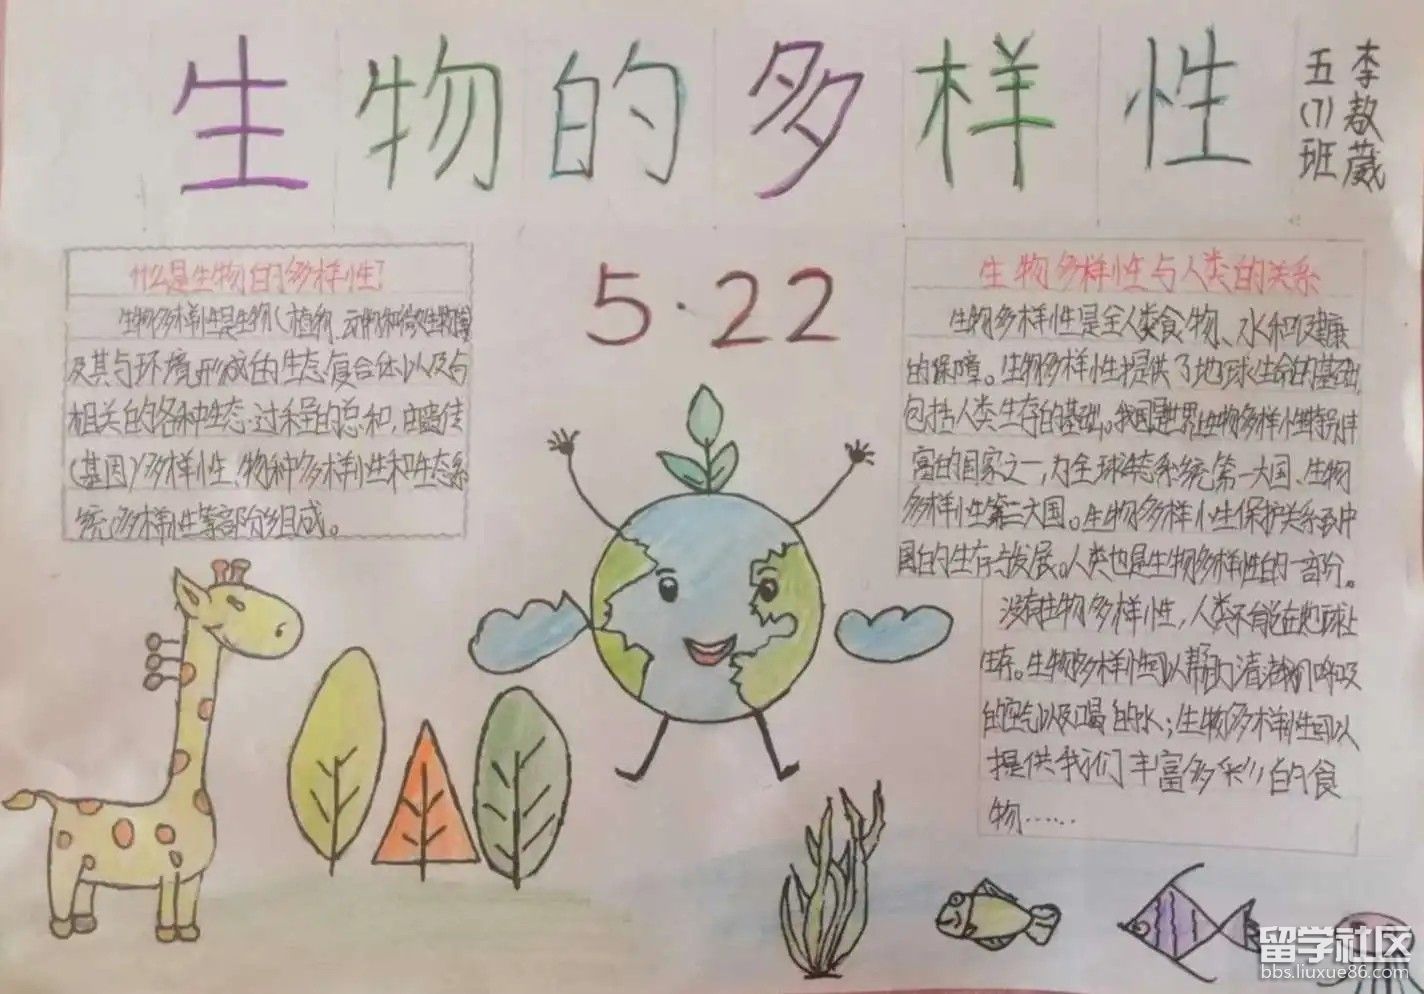 生物的多样性
五(7)班
李敖葳
5·22
什么是生物的多样性?
生物多样性是生物(植物、动物和微生物)
及其与环境形成的生态复合体以及与
相关的各种生态过程的总和,由遗传
(基因)多样性、物种多样性和生态系
统多样性等部分组成。
生物多样性与人类的关系
生物多样性是全人类食物、水和健康
的保障。生物多样性提供了地球生命的基础,
包括人类生存的基础。我国是世界生物多样性丰
富的国家之一,为全球生态系统第一大国、生物
多样性第二大国。生物多样性保护关系到中
国的生存与发展。人类也是生物多样性的一部分。
没有生物多样性,人类不能在地球上
生存。生物多样性可以帮助清洁我们呼吸
的空气以及喝的水;生物多样性可以
提供我们丰富多彩的食
物……
留学社区
bbs.liuxue86.com